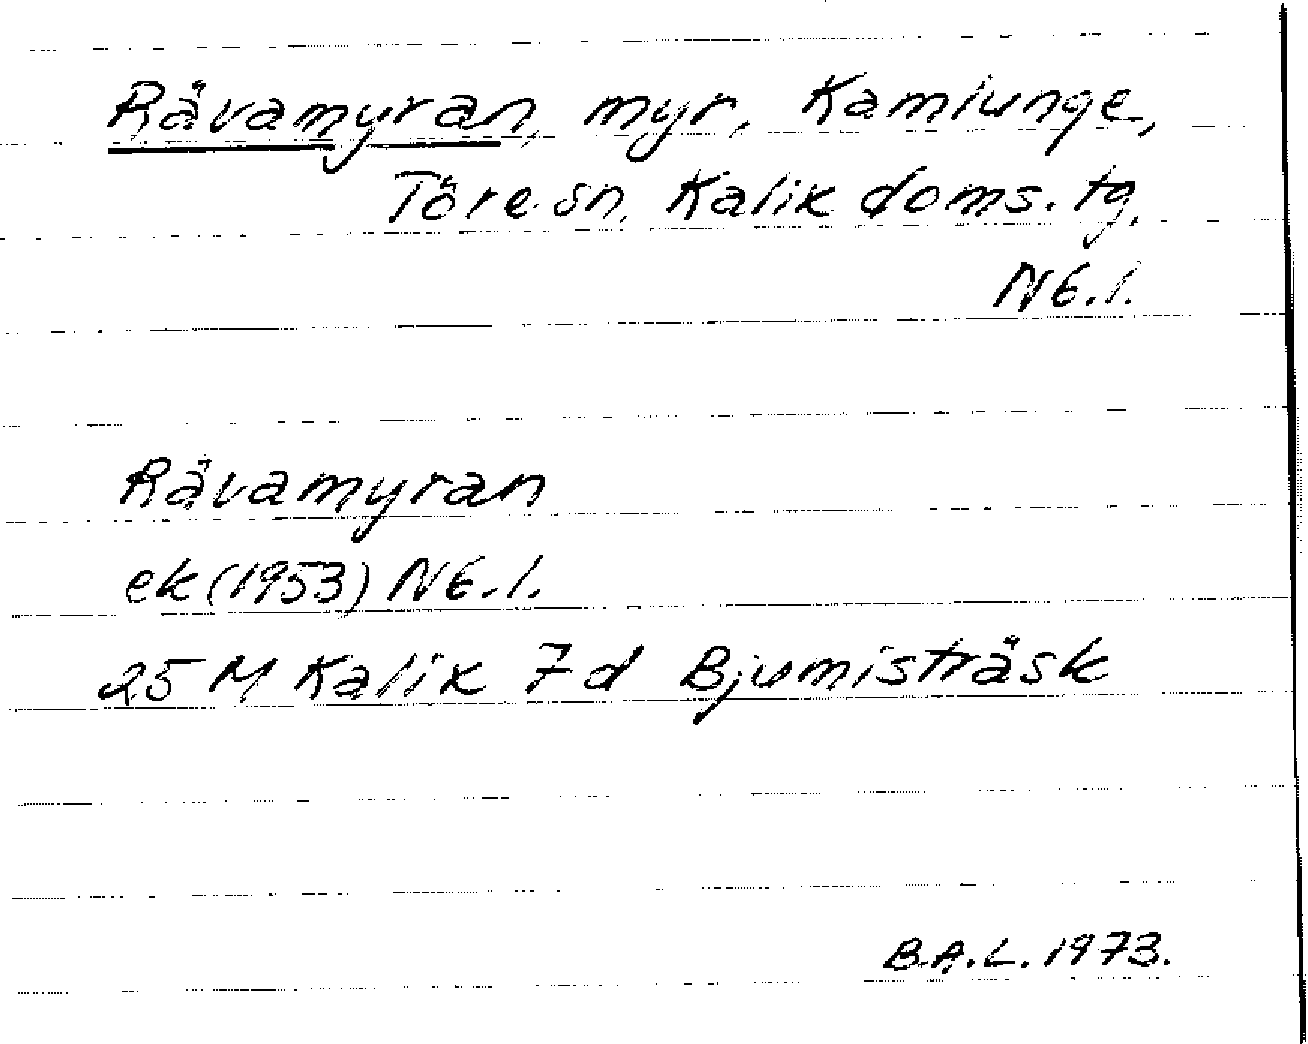 Råvamyran, myr, Kamlunge,
Töre sn, Kalix doms. tg.
Nb.l.
Råvamyran
ek (1953) Nb.l.
25 M Kalix 7d Bjumisträsk
B.A.L. 1973.